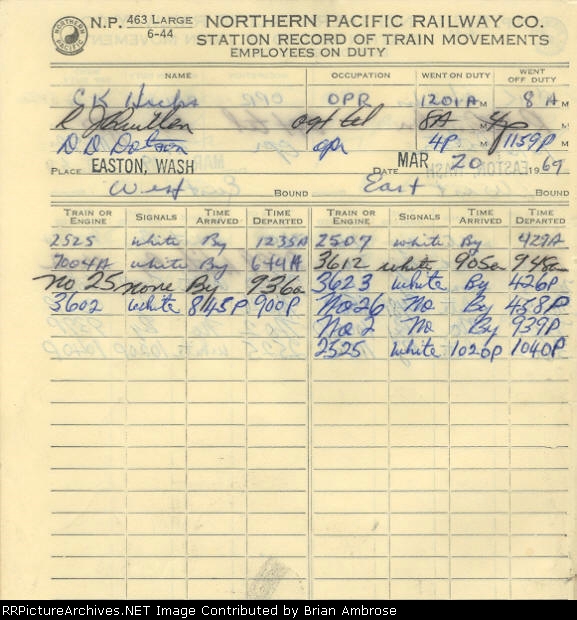 NORTHERN PACIFIC
N.P. 463 LARGE 6-44
NORTHERN PACIFIC RAILWAY CO.
STATION RECORD OF TRAIN MOVEMENTS
EMPLOYEES ON DUTY
NAME OCCUPATION WENT ON DUTY WENT OFF DUTY
CK OPR 1201A M 8A M
R J agt tel 8A M 4p M
D.D. Dotson opr 4P M 1159P M
PLACE EASTON, WASH DATE MAR 20 1969
West BOUND East BOUND
TRAIN OR ENGINE SIGNALS TIME ARRIVED TIME DEPARTED TRAIN OR ENGINE SIGNALS TIME ARRIVED TIME DEPARTED
2525 white By 1235A 2507 white By 427A
7004A white By 644A 3612 white 905a 948a
no 25 none By 936a 3623 white By 426P
3602 white 845P 900P No 26 No By 458P
No 2 No By 939P
2525 white 1020P 1040P
RailPictureArchives.NET Image Contributed by Brian Ambrose